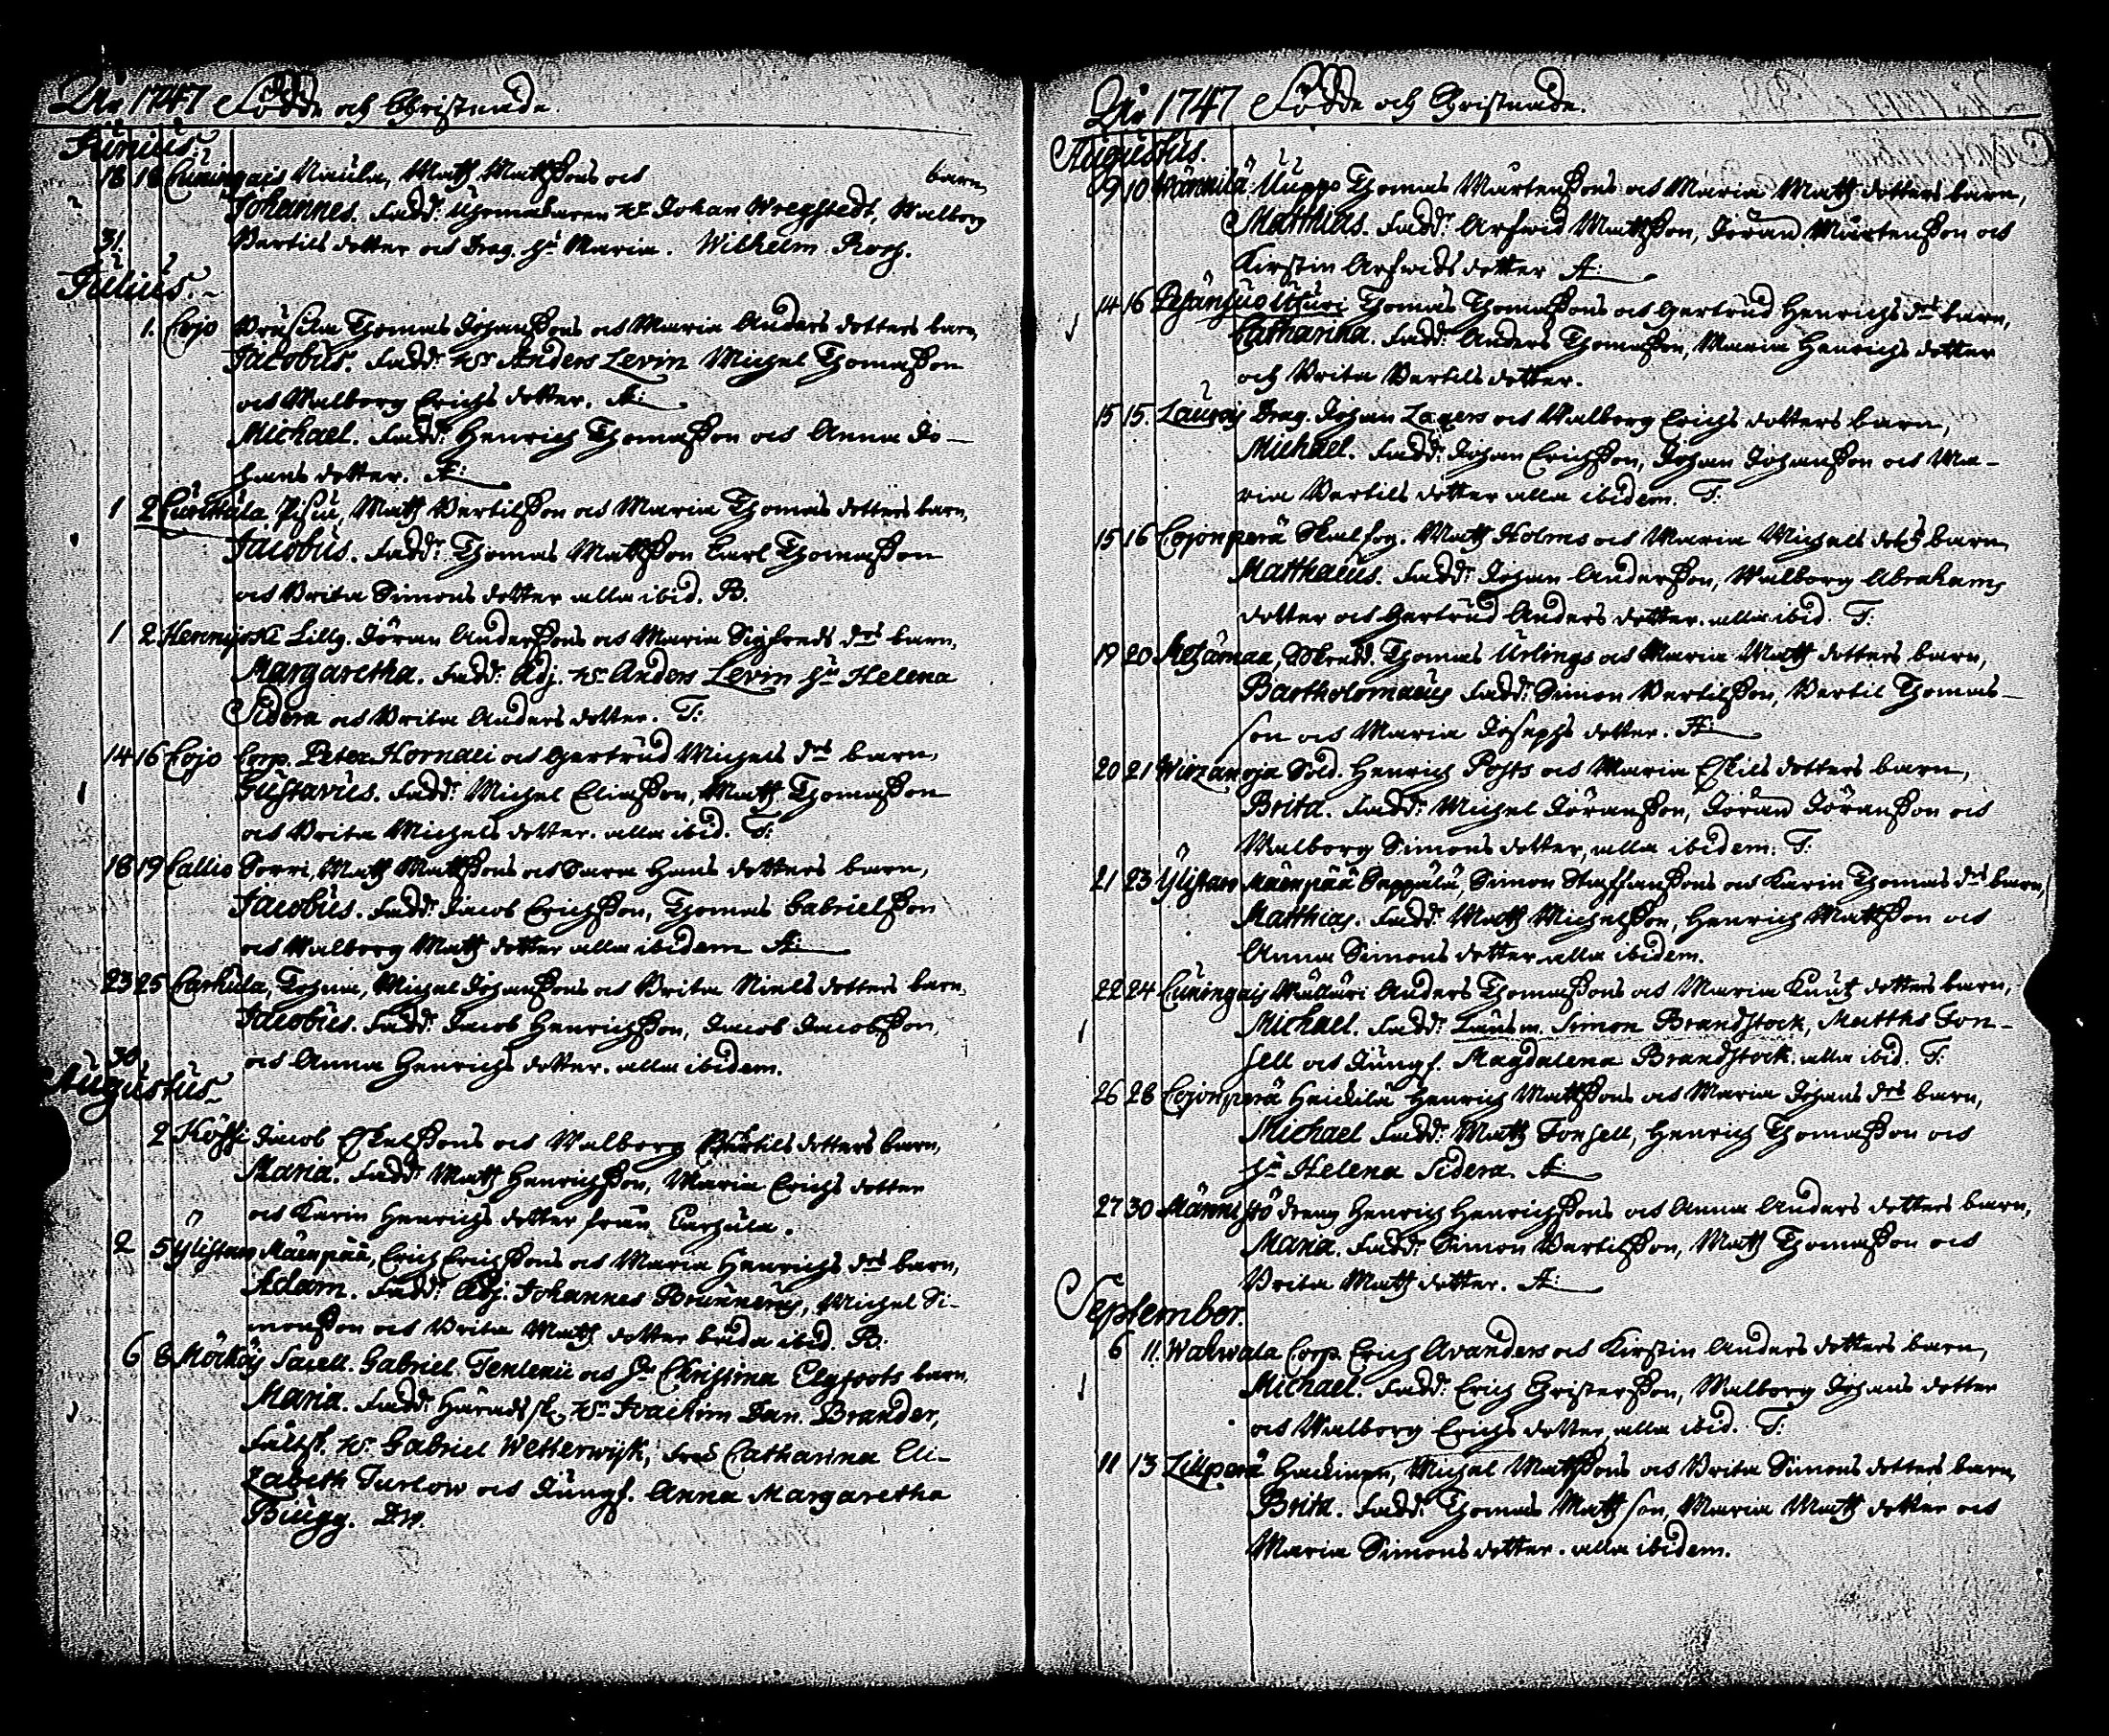 År 1747 Födde och Christnade.
Junius
18 18 Cuningais Naula, Matz Mattssons och barn,
Johannes. Fadd: Hr Johan Wregstedt, Walborg
31. Bertils dotter och Hu Maria. Wilhelm Rosz.
Julius.
1. Cojo Prusila Thomas Johanssons och Maria Anders dotters barn,
Jacobus. Fadd: Hr Anders Levin Michel Thomasson
och Walborg Erichs dotter. A:
Michael. Fadd: Henrich Thomasson och Anna Jo-
hans dotter. A:
1 2 Pisu, Matz Bertilsson och Maria Thomas dotters barn,
Jacobus. Fadd: Thomas Mattsson Carl Thomasson
och Brita Simons dotter alla ibid. B.
1 2 Hennijoki Lillg. Jöran Anderssons och Maria Sigfreds drs barn,
Margaretha. Fadd: Adj. Hr Anders Levin Hu Helena
Sidera och Brita Anders dotter. T:
14 16 Cojo Corp. Peter Hornaei och Gertrud Michels drs barn,
Gustavus. Fadd: Michel Eliasson, Matz Thomasson
och Brita Michels dotter. alla ibid. T:
18 19 Callio Sorri, Matz Mattssons och Sara Hans dotters barn,
Jacobus. Fadd: Jacob Erichsson, Thomas Gabrielsson
och Walborg Matz dotter alla ibidem A:
23 25 Carhula, Tohma, Michel Johanssons och Brita Niels dotters barn,
Jacobus. Fadd: Jacob Henrichsson, Jacob Jacobsson,
30. och Anna Henrichs dotter. alla ibidem.
Augustus
2 Köhfi Jacob Eskelssons och Walborg Bertils dotters barn,
Maria. Fadd: Matz Henrichsson, Maria Erichs dotter
och Karin Henrichs dotter från Carhula.
2 5 Ylistaro Mäenpää, Erich Erichssons och Maria Henrichs drs barn,
Adam. Fadd: Adj. Johannes Brunnerus, Michel Si-
monsson och Brita Matz dotter båda ibid. B:
6 8 Mörköis Sacell. Gabriel Tenlenii och Christina Elgfoots barn,
Maria. Fadd: Häradssk. Hr Joachim Dan. Brander,
Fältsk. Hr Gabriel Wetterwijk, Catharina Eli-
zabeth Turlow och Jungf. Anna Margaretha
Biugg. Dw.
År 1747 Födde och Christnade.
Augustus.
9 10 Wännilä Uuppo Thomas Mårtenssons och Maria Matz dotters barn,
Matthias. Fadd: Arfwid Mattsson, Jöran Mårtensson och
Kirstin Arfwids dotter A:
14 16 Pesänsuo Thomas Thomassons och Gertrud Henrichs drs barn,
Catharina. Fadd: Anders Thomasson, Maria Henrichs dotter
och Brita Bertils dotter.
15 15. Laurois Drag. Johan Lagers och Walborg Erichs dotters barn,
Michael. Fadd: Johan Erichsson, Johan Johansson och Ma-
ria Bertils dotter alla ibidem. T:
15 16 Cojonperä Matz Holms och Maria Michels dotrs barn
Matthaeus. Fadd: Johan Andersson, Walborg Abrahams
dotter och Gertrud Anders dotter. alla ibid. T:
19 20 Metsämaa, Skrädd. Thomas Urlings och Maria Matz dotters barn,
Bartholomaeus Fadd: Simon Bertilsson, Bertil Thomas-
son och Maria Josephs dotter. A:
20 21 Wirzanoja Sold. Henrich Posts och Maria Eskils dotters barn,
Brita. Fadd: Michel Jöransson, Jöran Jöransson och
Walborg Simons dotter, alla ibidem. T:
21 23 Ylistaro Mäenpää Seppälä, Simon Staffanssons och Karin Thomas drs barn,
Matthias. Fadd: Matz Michelsson, Henrich Mattsson och
Anna Simons dotter alla ibidem.
22 24 Cuningais Wälläri Anders Thomassons och Maria Knutz dotters barn,
Michael. Fadd: Länsm. Simon Brandstock, Matths Fon-
sell och Jungf. Magdalena Brandstock alla ibid. T:
26 28 Cojonperä Heickilä Henrich Mattssons och Maria Johans drs barn,
Michael Fadd: Matz Fonsell, Henrich Thomasson och
Hu Helena Sidera. A:
27 30 Männistö dreng Henrich Henrichssons och Anna Anders dotters barn,
Maria. Fadd: Simon Bertilsson, Matz Thomasson och
Brita Matz dotter. A:
September.
6 11. Wahwala Corp. Erich Avanders och Kirstin Anders dotters barn,
Michael. Fadd: Erich Christersson, Walborg Johans dotter
och Walborg Erichs dotter, alla ibid. T:
11 13 Lillperä Hackinen, Michel Mattssons och Brita Simons dotters barn,
Brita. Fadd: Thomas Matz son, Maria Matz dotter och
Maria Simons dotter. alla ibidem.